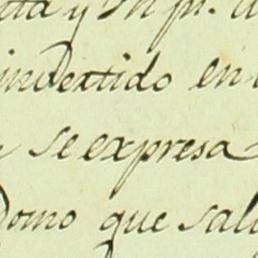 y
invertido en
se expresa
Domo que sal